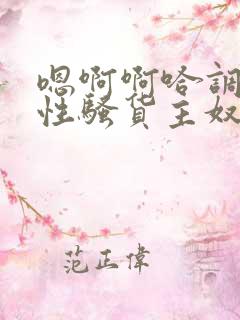 嗯啊啊哈調
性騷货主奴
范正偉